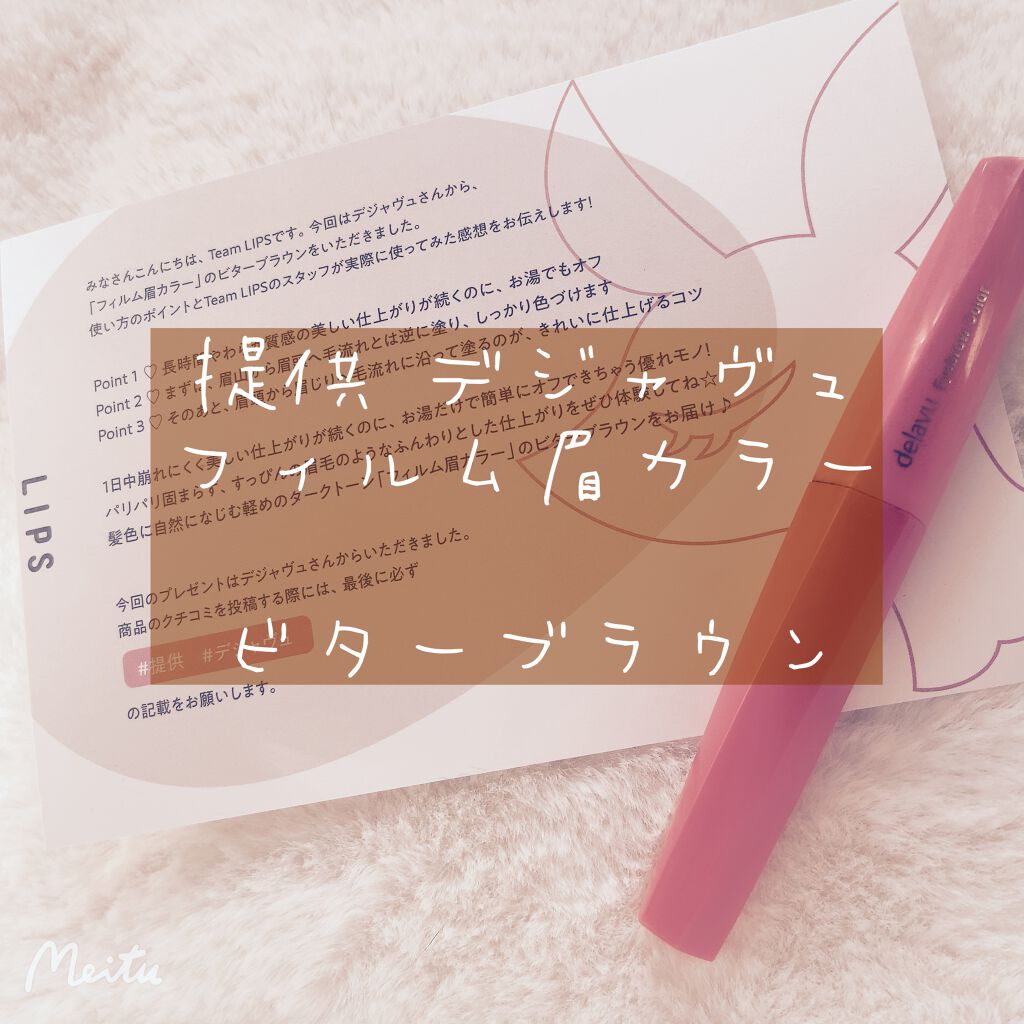 みなさんこんにちは、Team LIPSです。今回はデジャヴュさんから、
「フィルム眉カラー」のビターブラウンをいただきました。
使い方のポイントとTeam LIPSのスタッフが実際に使ってみた感想をお伝えします!
Point 1 ♡ 長時間やわらか質感の美しい仕上がりが続くのに、お湯でもオフ
Point 2 ♡ まずは、眉山から眉頭へ毛流れとは逆に塗り、しっかり色づけます
Point 3 ♡ そのあと、眉頭から眉じりへ毛流れに沿って塗るのが、きれいに仕上げるコツ
提供 デジャヴュ
フィルム眉カラー
ビターブラウン
1日中崩れにくく美しい仕上がりが続くのに、お湯だけで簡単にオフできちゃう優れモノ!
パリパリ固まらず、すっぴんの眉毛のようなふんわりとした仕上がりをぜひ体験してね☆
髪色に自然になじむ軽めのダークトーン「フィルム眉カラー」のビターブラウンをお届け♪
今回のプレゼントはデジャヴュさんからいただきました。
商品のクチコミを投稿する際には、最後に必ず
#提供 #デジャヴュ
の記載をお願いします。
LIPS
dejavu Eyebrow Color
Meitu